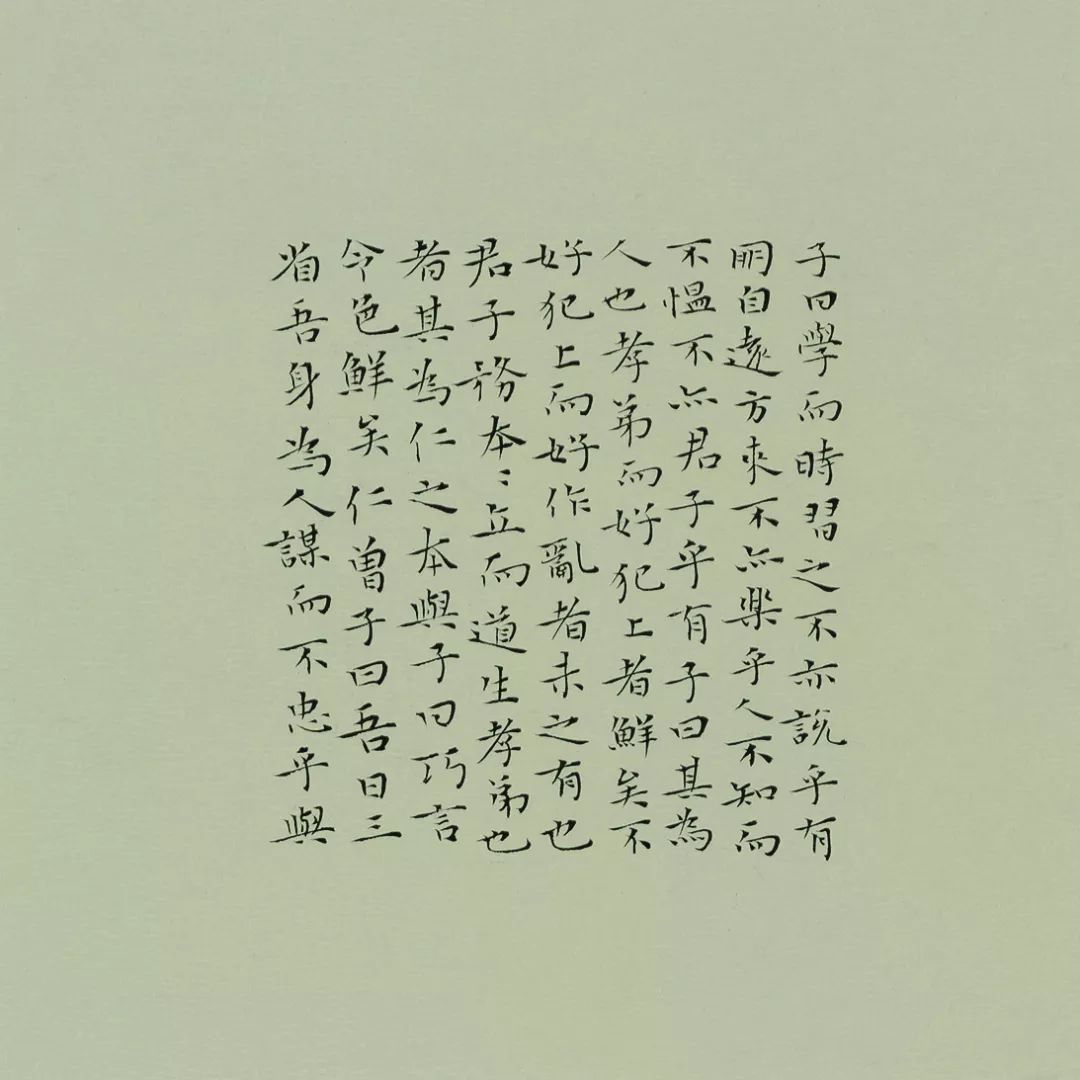 子曰學而時習之不亦說乎有
朋自遠方來不亦樂乎人不知而
不愠不亦君子乎有子曰其為
人也孝弟而好犯上者鮮矣不
好犯上而好作亂者未之有也
君子務本〻立而道生孝弟也
者其為仁之本與子曰巧言
令色鮮矣仁曾子曰吾日三
省吾身為人謀而不忠乎與